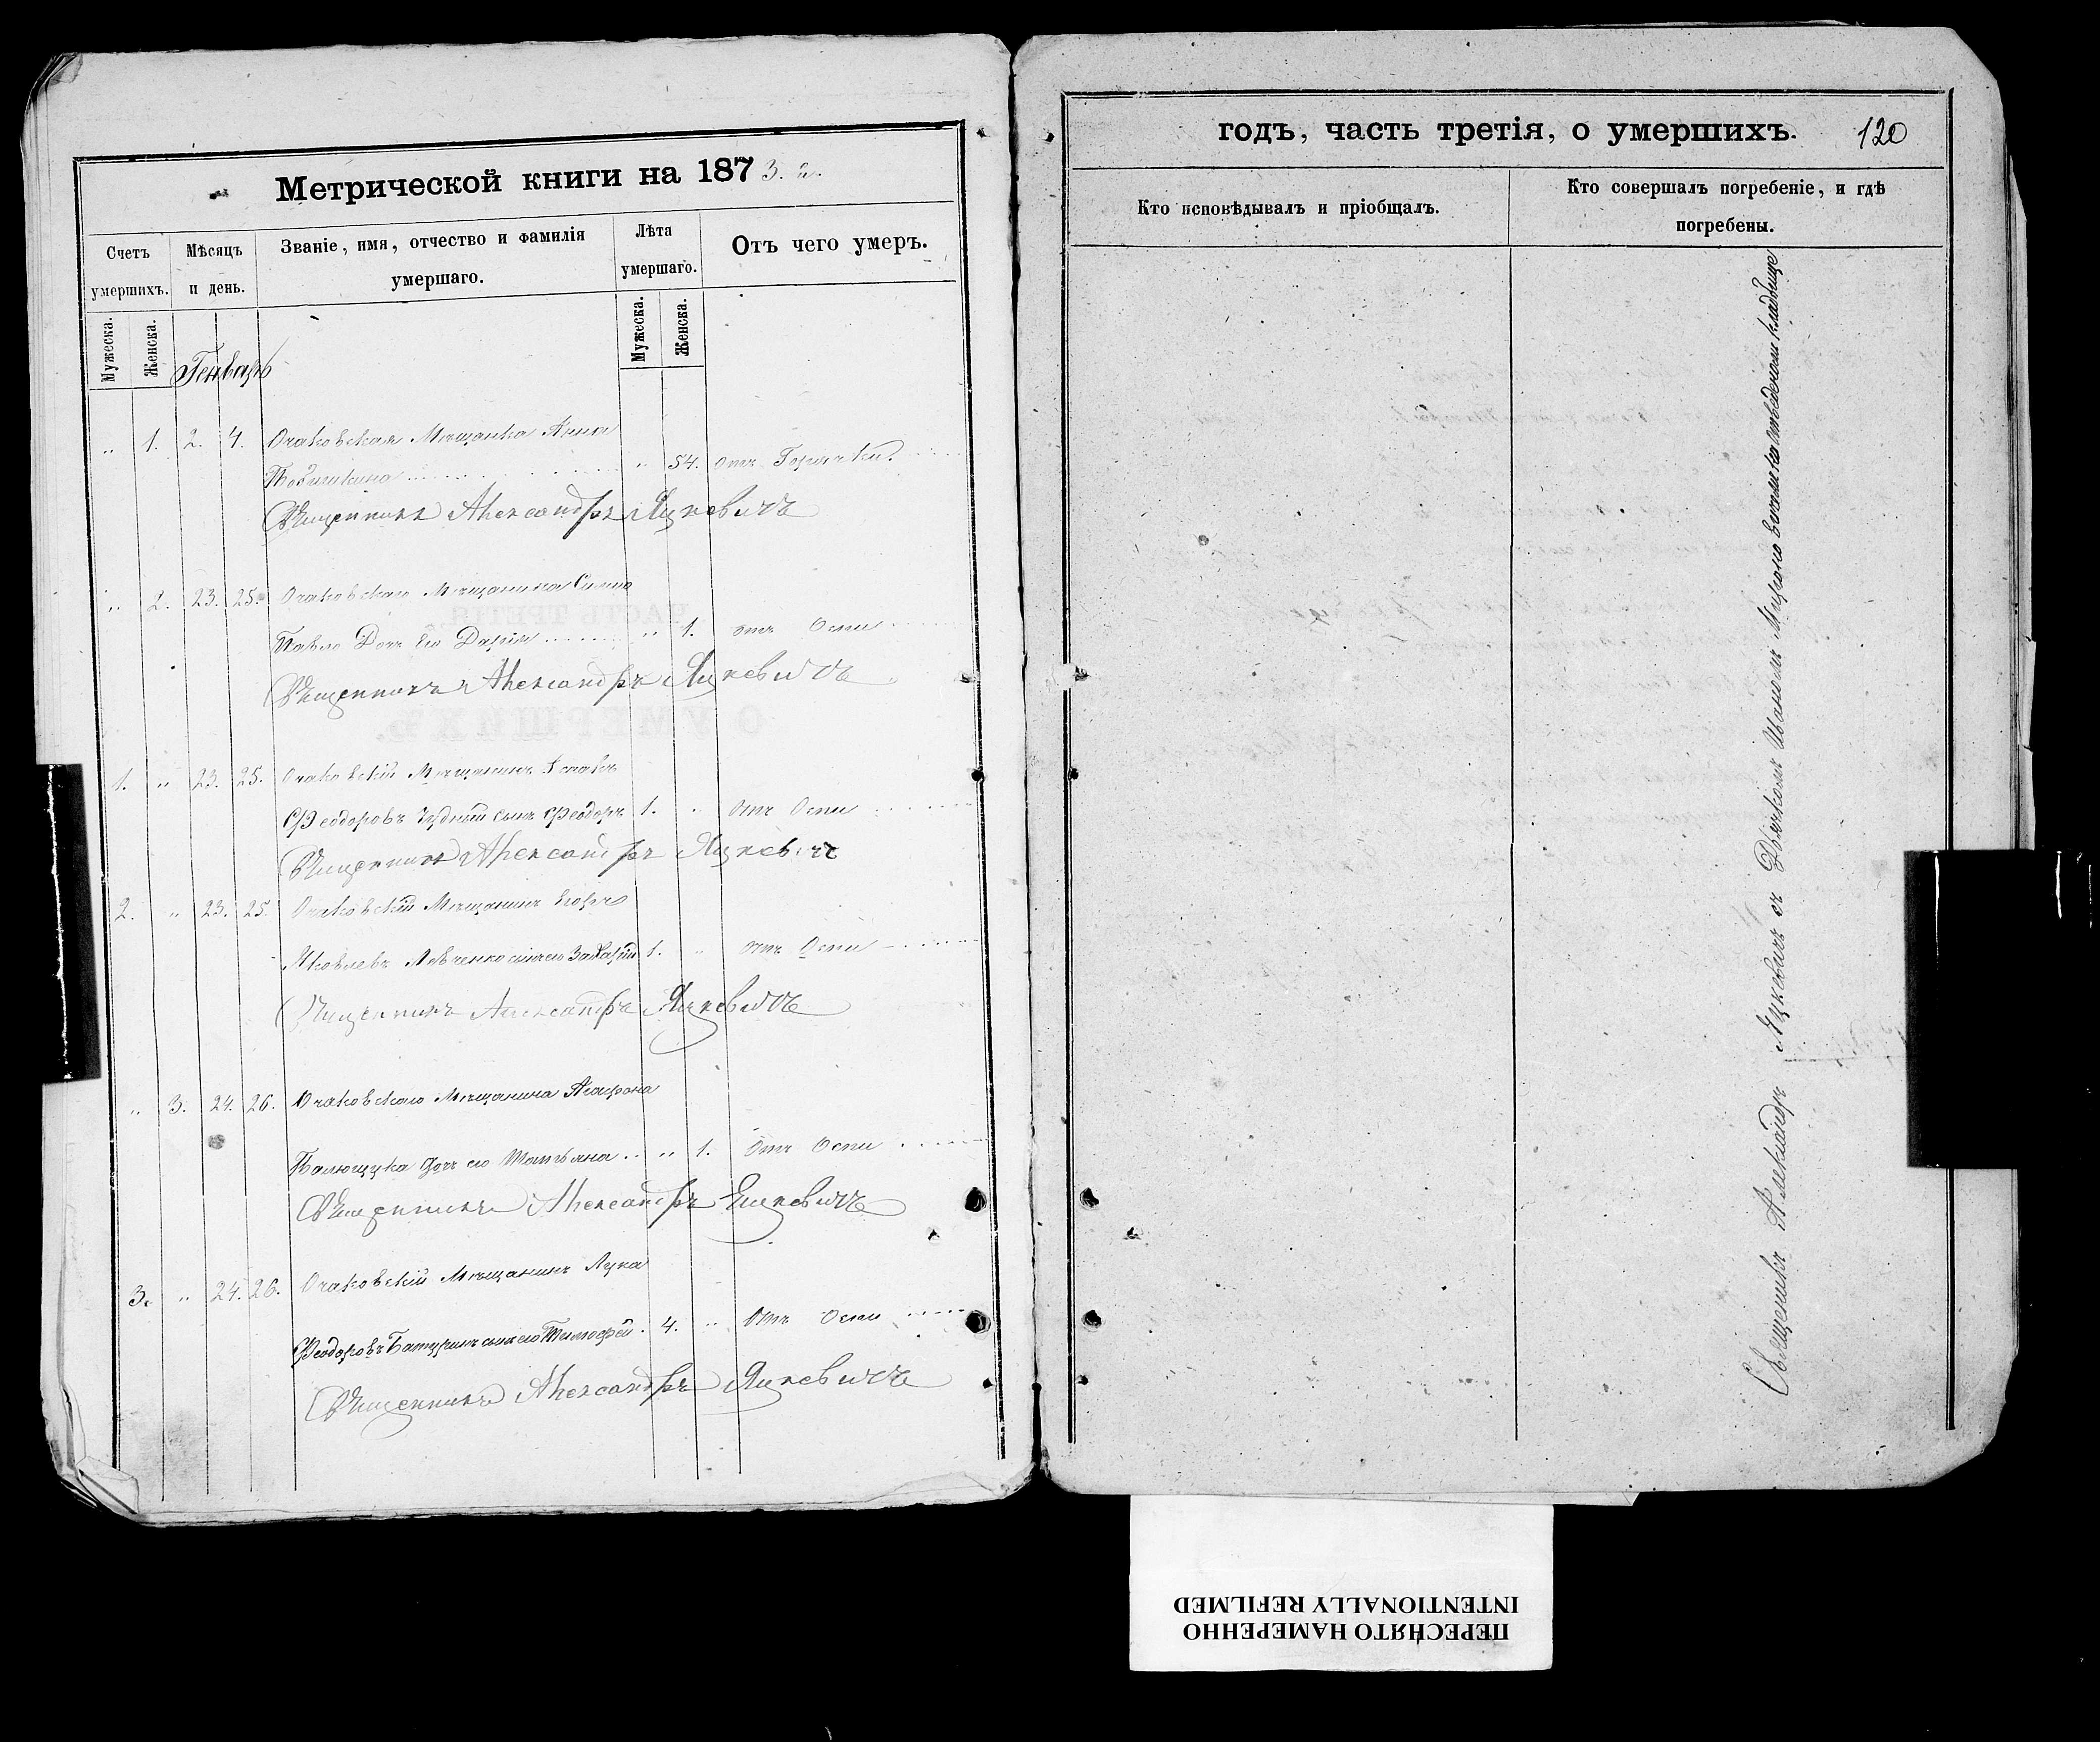 Метрической книги на 1873. й.
Счетъ умершихъ.
Мѣсяцъ и день.
Званіе, имя, отчество и фамилія умершаго.
Лѣта умершаго.
Отъ чего умеръ.
Мужеска.
Женска.
Генварь
Мужеска.
Женска.
„ 1. 2. 4. Очаковская Мѣщанка Анна
„ 54. отъ Горячки.
Священникъ Александръ Яцкевичъ
„ 2. 23. 25. Очаковскаго Мѣщанина
Дочь его Дарія „ 1. отъ Оспи
Священникъ Александръ Яцкевичъ
1. „ 23. 25. Очаковскій Мѣщанинъ
Феодоровъ Чудный сынъ Феодоръ 1. „ отъ Оспи
Священникъ Александръ Яцкевичъ
2. „ 23. 25. Очаковскій Мѣщанинъ Егоръ
Яковлевъ Левченко сынъ его Захарій 1. „ отъ Оспи
Священникъ Александръ Яцкевичъ
„ 3. 24. 26. Очаковскаго Мѣщанина Агафона
Палющука дочь его Татьяна „ 1. отъ Оспи
Священникъ Александръ Яцкевичъ
3. „ 24. 26. Очаковскій Мѣщанинъ Лука
Феодоровъ Батуринъ сынъ его Тимофей 4. „ отъ Оспи
Священникъ Александръ Яцкевичъ
годъ, часть третія, о умершихъ. 120
Кто исповѣдывалъ и пріобщалъ.
Кто совершалъ погребеніе, и гдѣ
погребены.
Священникъ Александръ Яцкевичъ съ Дьячкомъ Иваномъ на отведеномъ кладбище
ПЕРЕСНЯТО НАМЕРЕННО
INTENTIONALLY REFILMED